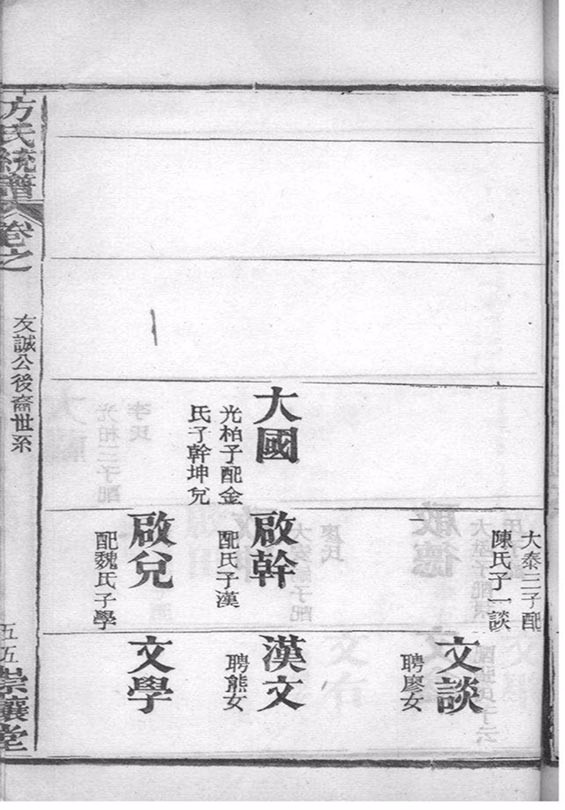 大國
光柏子配金
氏子幹坤兌
大泰三子配
陳氏子一談
啟幹
配氏子漢
啟兌
配魏氏子學
文談
聘廖女
漢文
聘熊女
文學
方氏統譜
卷之
友誠公後裔世系
五五
崇讓堂